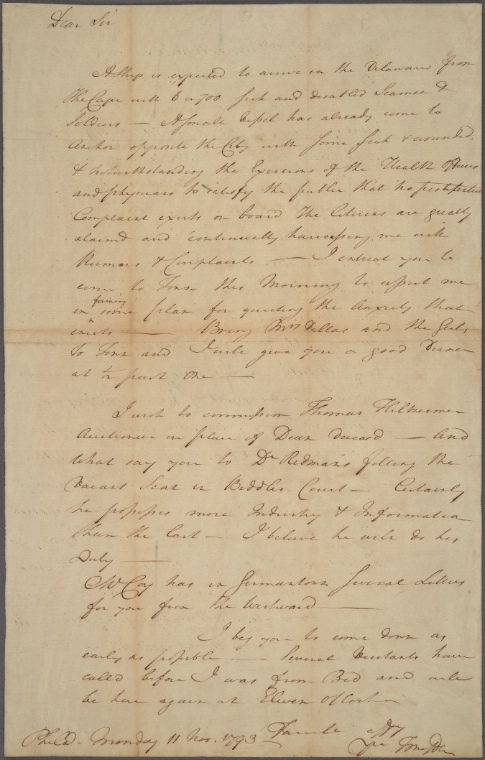 Dear Sir
A Ship is expected to arrive in the Delaware from
the Cape with 6 or 700 sick and disabled Seamen &
Soldiers — A small Vessel has already come to
Anchor opposite the City with some sick & wounded
& notwithstanding the of the Health Officers
and physicians to satisfy the public that no
Complaint exists on board The Citizens are greatly
alarmed and continually harrassing me with
Rumors & Complaints — I entreat you to
come to Town this Morning to assist me
in forming some plan for quieting the Anxiety that
exists — Bring Mrs Dallas and the Girls
to Town and I will give you a good Dinner
at ½ past One —
I wish to commission Thomas
Auctioneer in place of Dean deceased — And
What say you to Dr Redman's filling the
Vacant Seat in Biddles Court — Certainly
he possesses more Industry & Information
than the last — I believe he will do his
Duty —
McCoy has in Germantown several Letters
for you from the Westward —
I beg you to come down as
early as possible — Several have
called before I was from Bed and will
be here again at Eleven oClock —
Philad. Monday 11 Nov. 1793